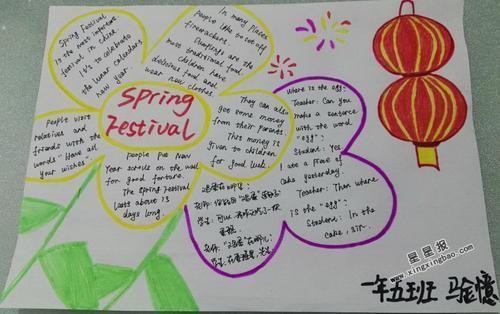 Spring Festival
is the most important
festival in China.
It's to celebrate
the lunar calendars
new year.
In many places
people like to set off
firecrackers.
Dumplings are the
most traditional food.
Children have
delicious food and
wear new clothes.
Spring
Festival
People visit
relatives and
friends with the
words "Have all
your wishes".
They can also
get some money
from their parents.
This money is
given to children
for good luck.
people put New
Year scrolls on the wall
for good fortune.
The Spring Festival
lasts about 15
days long.
Where is the egg?
Teacher: Can you
make a sentence
with the word
"egg"?
Student: Yes.
I ate a piece of
cake yesterday.
Teacher: Then where
is the "egg"?
Student: In the
cake, sir.
鸡蛋在哪里?
老师:
学生:
蛋糕.
老师: "鸡蛋"在哪儿?
学生: 在蛋糕里,
星星报
www.xingxingbao.com
一年五班